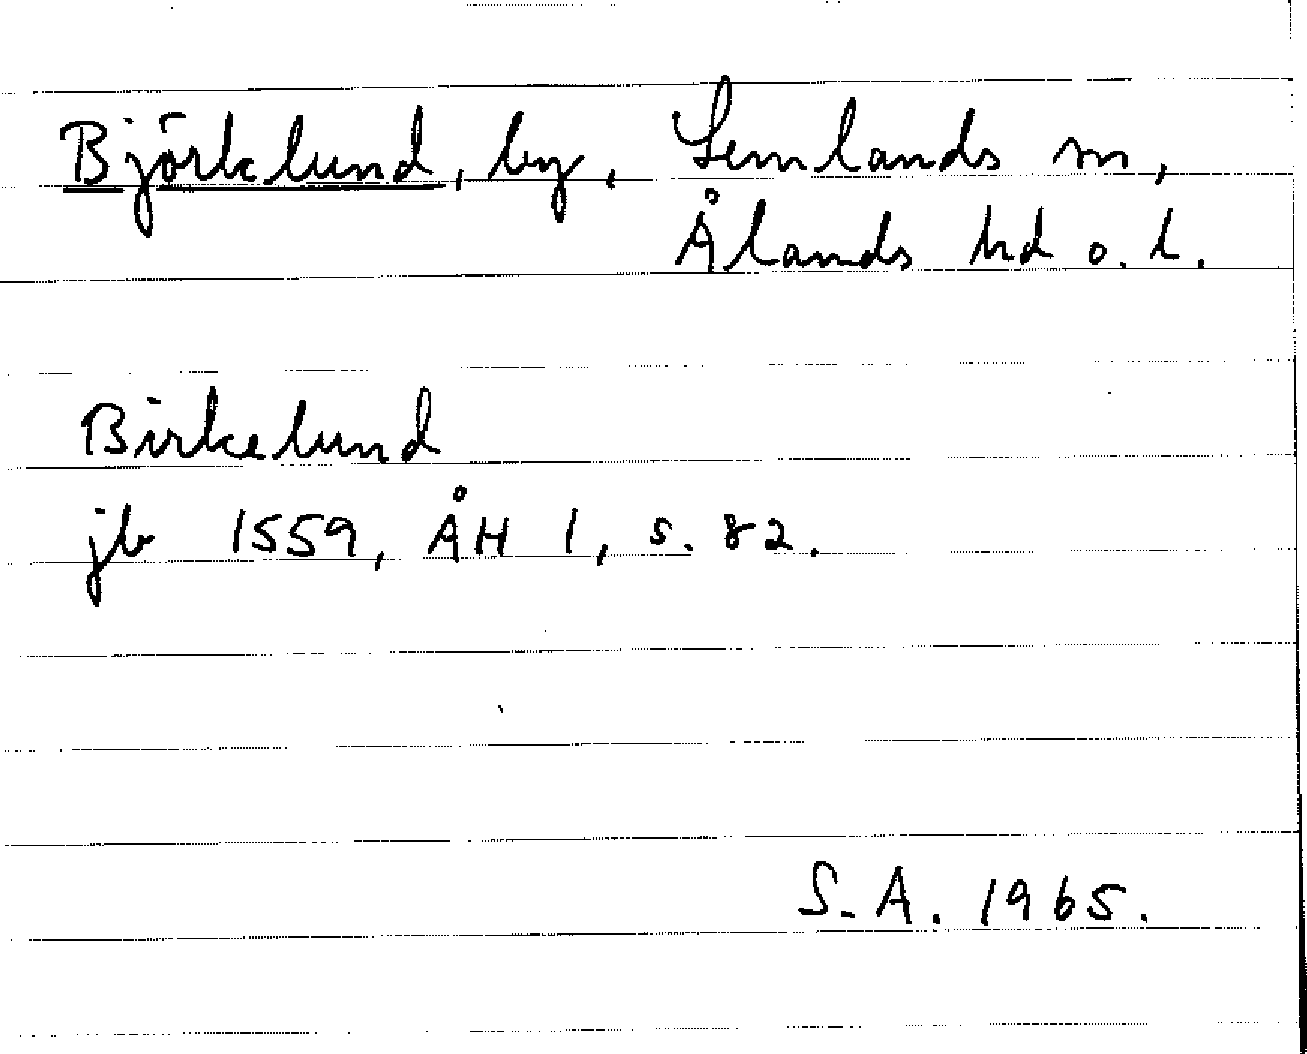 Björklund, by, Lemlands sn,
Ålands hd o. l.
Birkelund
jb 1559, ÅH 1, s. 82.
S.A. 1965.